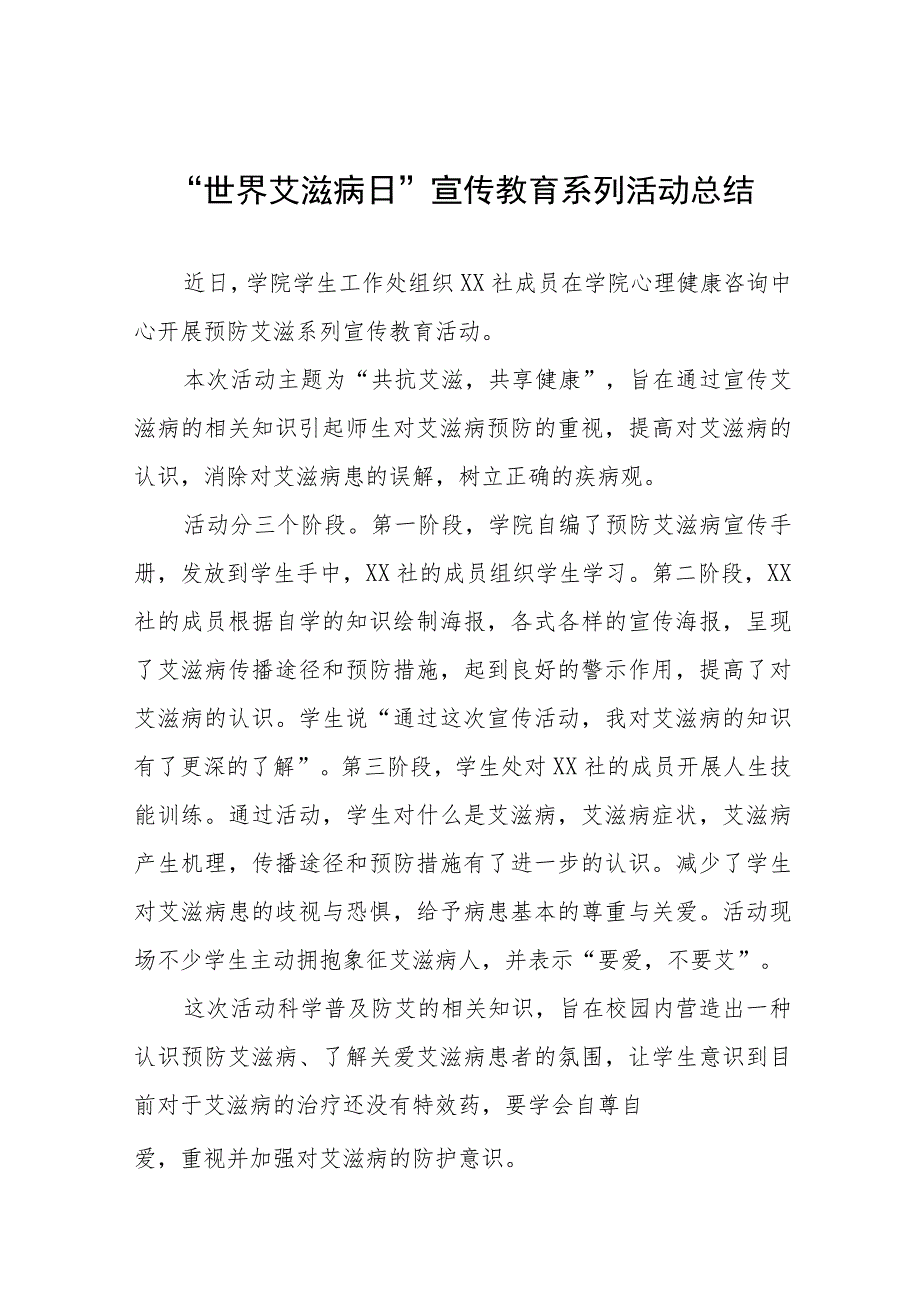 “世界艾滋病日”宣传教育系列活动总结
近日，学院学生工作处组织XX社成员在学院心理健康咨询中
心开展预防艾滋系列宣传教育活动。
本次活动主题为“共抗艾滋，共享健康”，旨在通过宣传艾
滋病的相关知识引起师生对艾滋病预防的重视，提高对艾滋病的
认识，消除对艾滋病患的误解，树立正确的疾病观。
活动分三个阶段。第一阶段，学院自编了预防艾滋病宣传手
册，发放到学生手中，XX社的成员组织学生学习。第二阶段，XX
社的成员根据自学的知识绘制海报，各式各样的宣传海报，呈现
了艾滋病传播途径和预防措施，起到良好的警示作用，提高了对
艾滋病的认识。学生说“通过这次宣传活动，我对艾滋病的知识
有了更深的了解”。第三阶段，学生处对XX社的成员开展人生技
能训练。通过活动，学生对什么是艾滋病，艾滋病症状，艾滋病
产生机理，传播途径和预防措施有了进一步的认识。减少了学生
对艾滋病患的歧视与恐惧，给予病患基本的尊重与关爱。活动现
场不少学生主动拥抱象征艾滋病人，并表示“要爱，不要艾”。
这次活动科学普及防艾的相关知识，旨在校园内营造出一种
认识预防艾滋病、了解关爱艾滋病患者的氛围，让学生意识到目
前对于艾滋病的治疗还没有特效药，要学会自尊自
爱，重视并加强对艾滋病的防护意识。